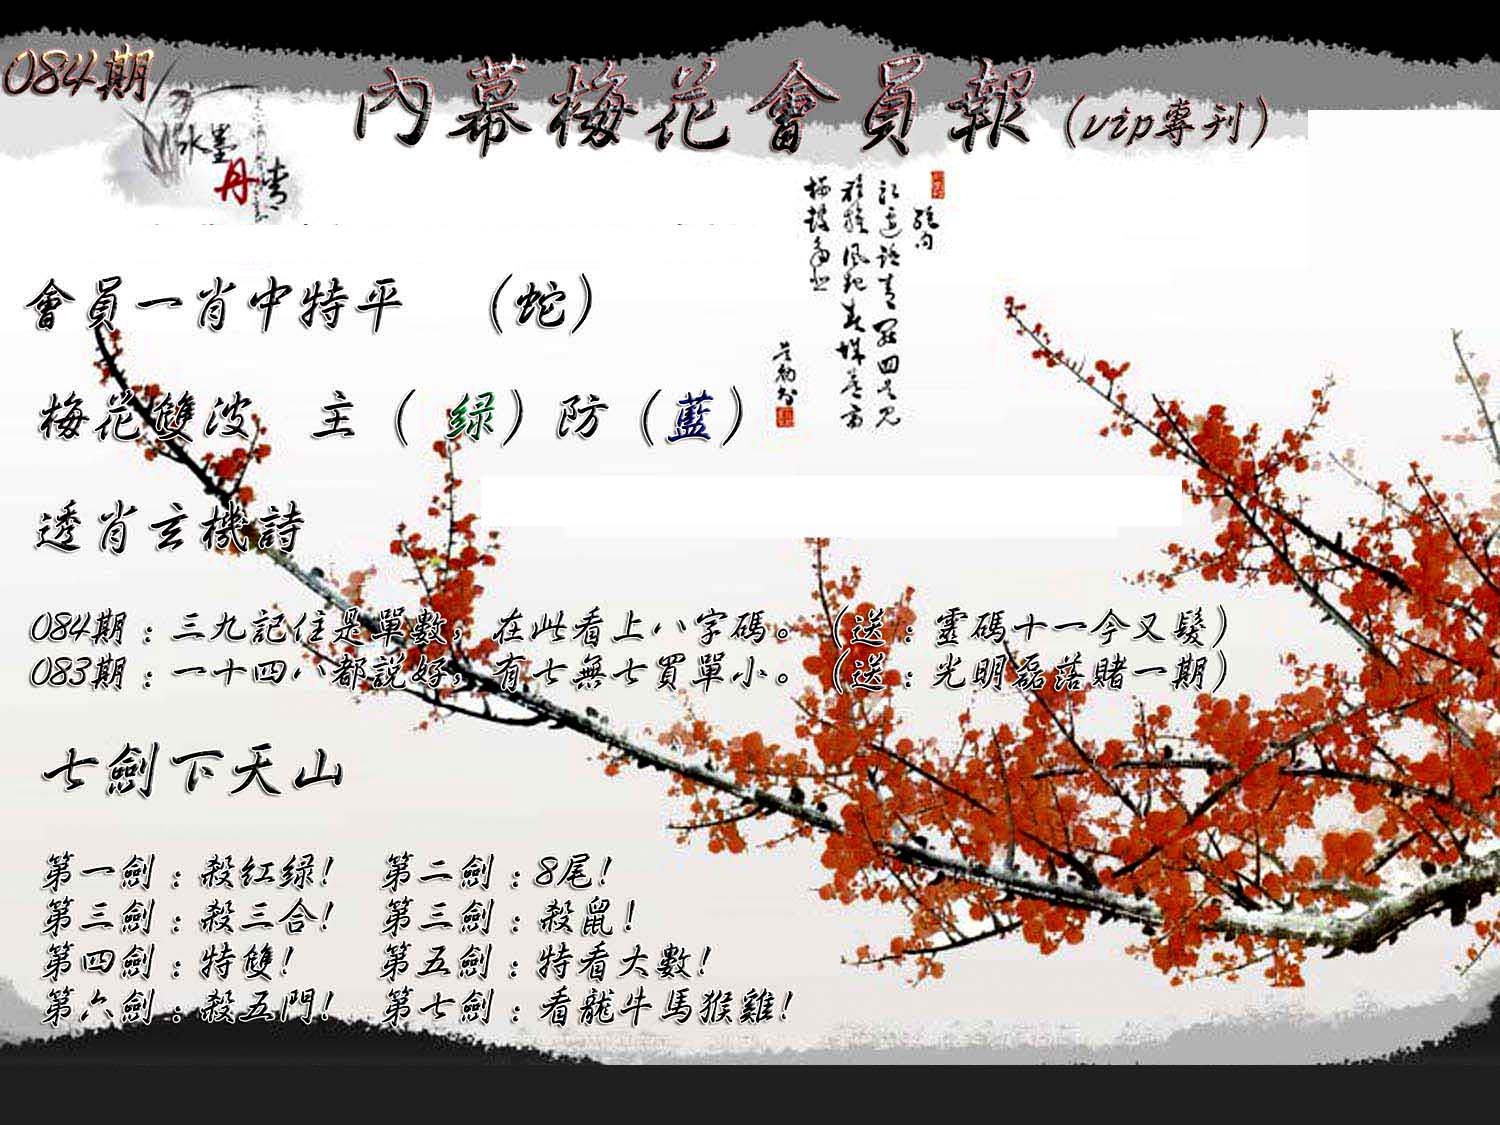 084期
內幕梅花會員報（vip專刊）
水墨
丹青
會員一肖中特平 （蛇）
梅花雙波 主（绿）防（藍）
透肖玄機詩
084期：三九記住是單數，在此看上八字碼。（送：靈碼十一今又髮）
083期：一十四八都説好，有七無七買單小。（送：光明磊落賭一期）
七劍下天山
第一劍：殺紅绿! 第二劍：8尾!
第三劍：殺三合! 第三劍：殺鼠!
第四劍：特雙! 第五劍：特看大數!
第六劍：殺五門! 第七劍：看龍牛馬猴雞!